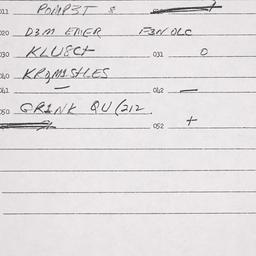 011 POMP3T 8
020 D3M EMER F3NOLC
030 KLU8Ct 031 0
040 KRQM1STLES
041 — 042 —
050 GR1NK QU(212
052 +